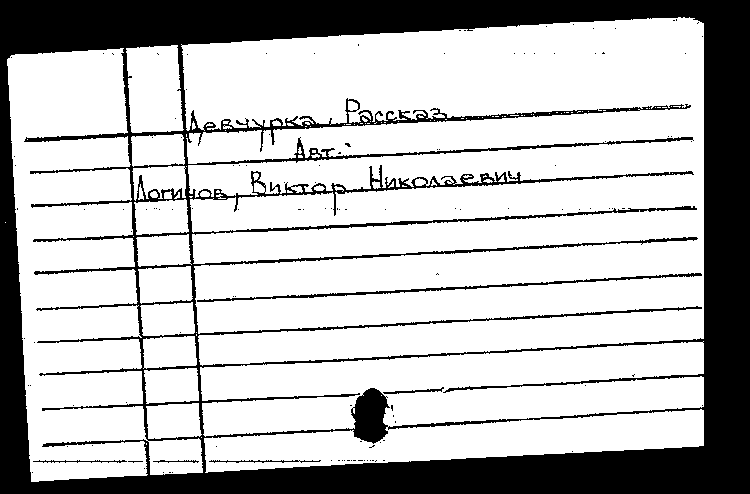 Девчурка. Рассказ.
Авт.:
Логинов, Виктор Николаевич